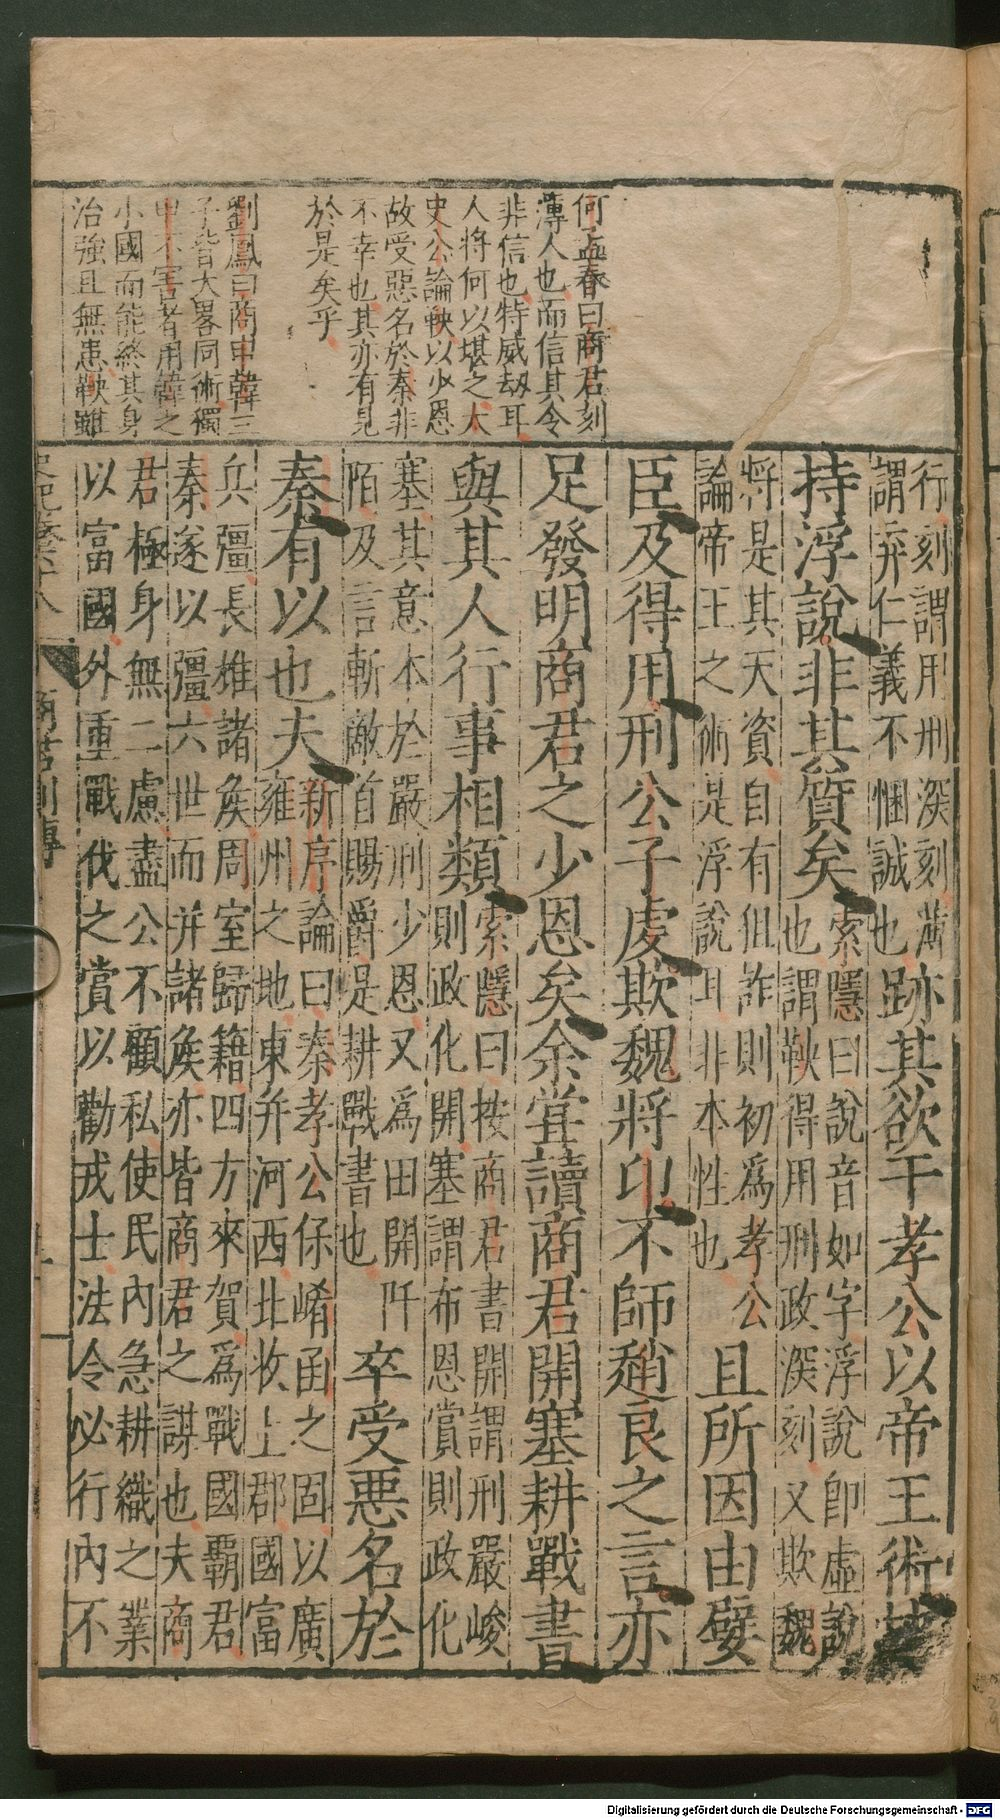 何孟春曰商君刻
薄人也而信其令
非信也特威劫耳
人將何以堪之太
史公論鞅以少恩
故受惡名於秦非
不幸也其亦有見
於是矣乎
劉鳳曰商申韓三
子皆大畧同術獨
申不害者用韓之
小國而能終其身
治強且無患鞅雖
行刻謂用刑深刻薄
謂弃仁義不悃誠也
跡其欲干孝公以帝王術挾
持浮說非其質矣
索隱曰說音如字浮說即虛說
也謂鞅得用刑政深刻又欺魏
將是其天資自有徂詐則初爲孝公
論帝王之術是浮說耳非本性也
且所因由嬖
臣及得用刑公子虔欺魏將卬不師趙良之言亦
足發明商君之少恩矣余嘗讀商君開塞耕戰書
與其人行事相類
索隱曰按商君書開謂刑嚴峻
則政化開塞謂布恩賞則政化
塞其意本於嚴刑少恩又爲田開阡
陌及言斬敵首賜爵是耕戰書也
卒受惡名於
秦有以也夫
新序論曰秦孝公保崤函之固以廣
雍州之地東并河西北收上郡國富
兵彊長雄諸侯周室歸籍四方來賀爲戰國霸君
秦遂以彊六世而并諸侯亦皆商君之謀也夫商
君極身無二慮盡公不顧私使民內急耕織之業
以富國外重戰伐之賞以勸戎士法令必行內不
商君列傳
Digitalisierung gefördert durch die Deutsche Forschungsgemeinschaft - DFG